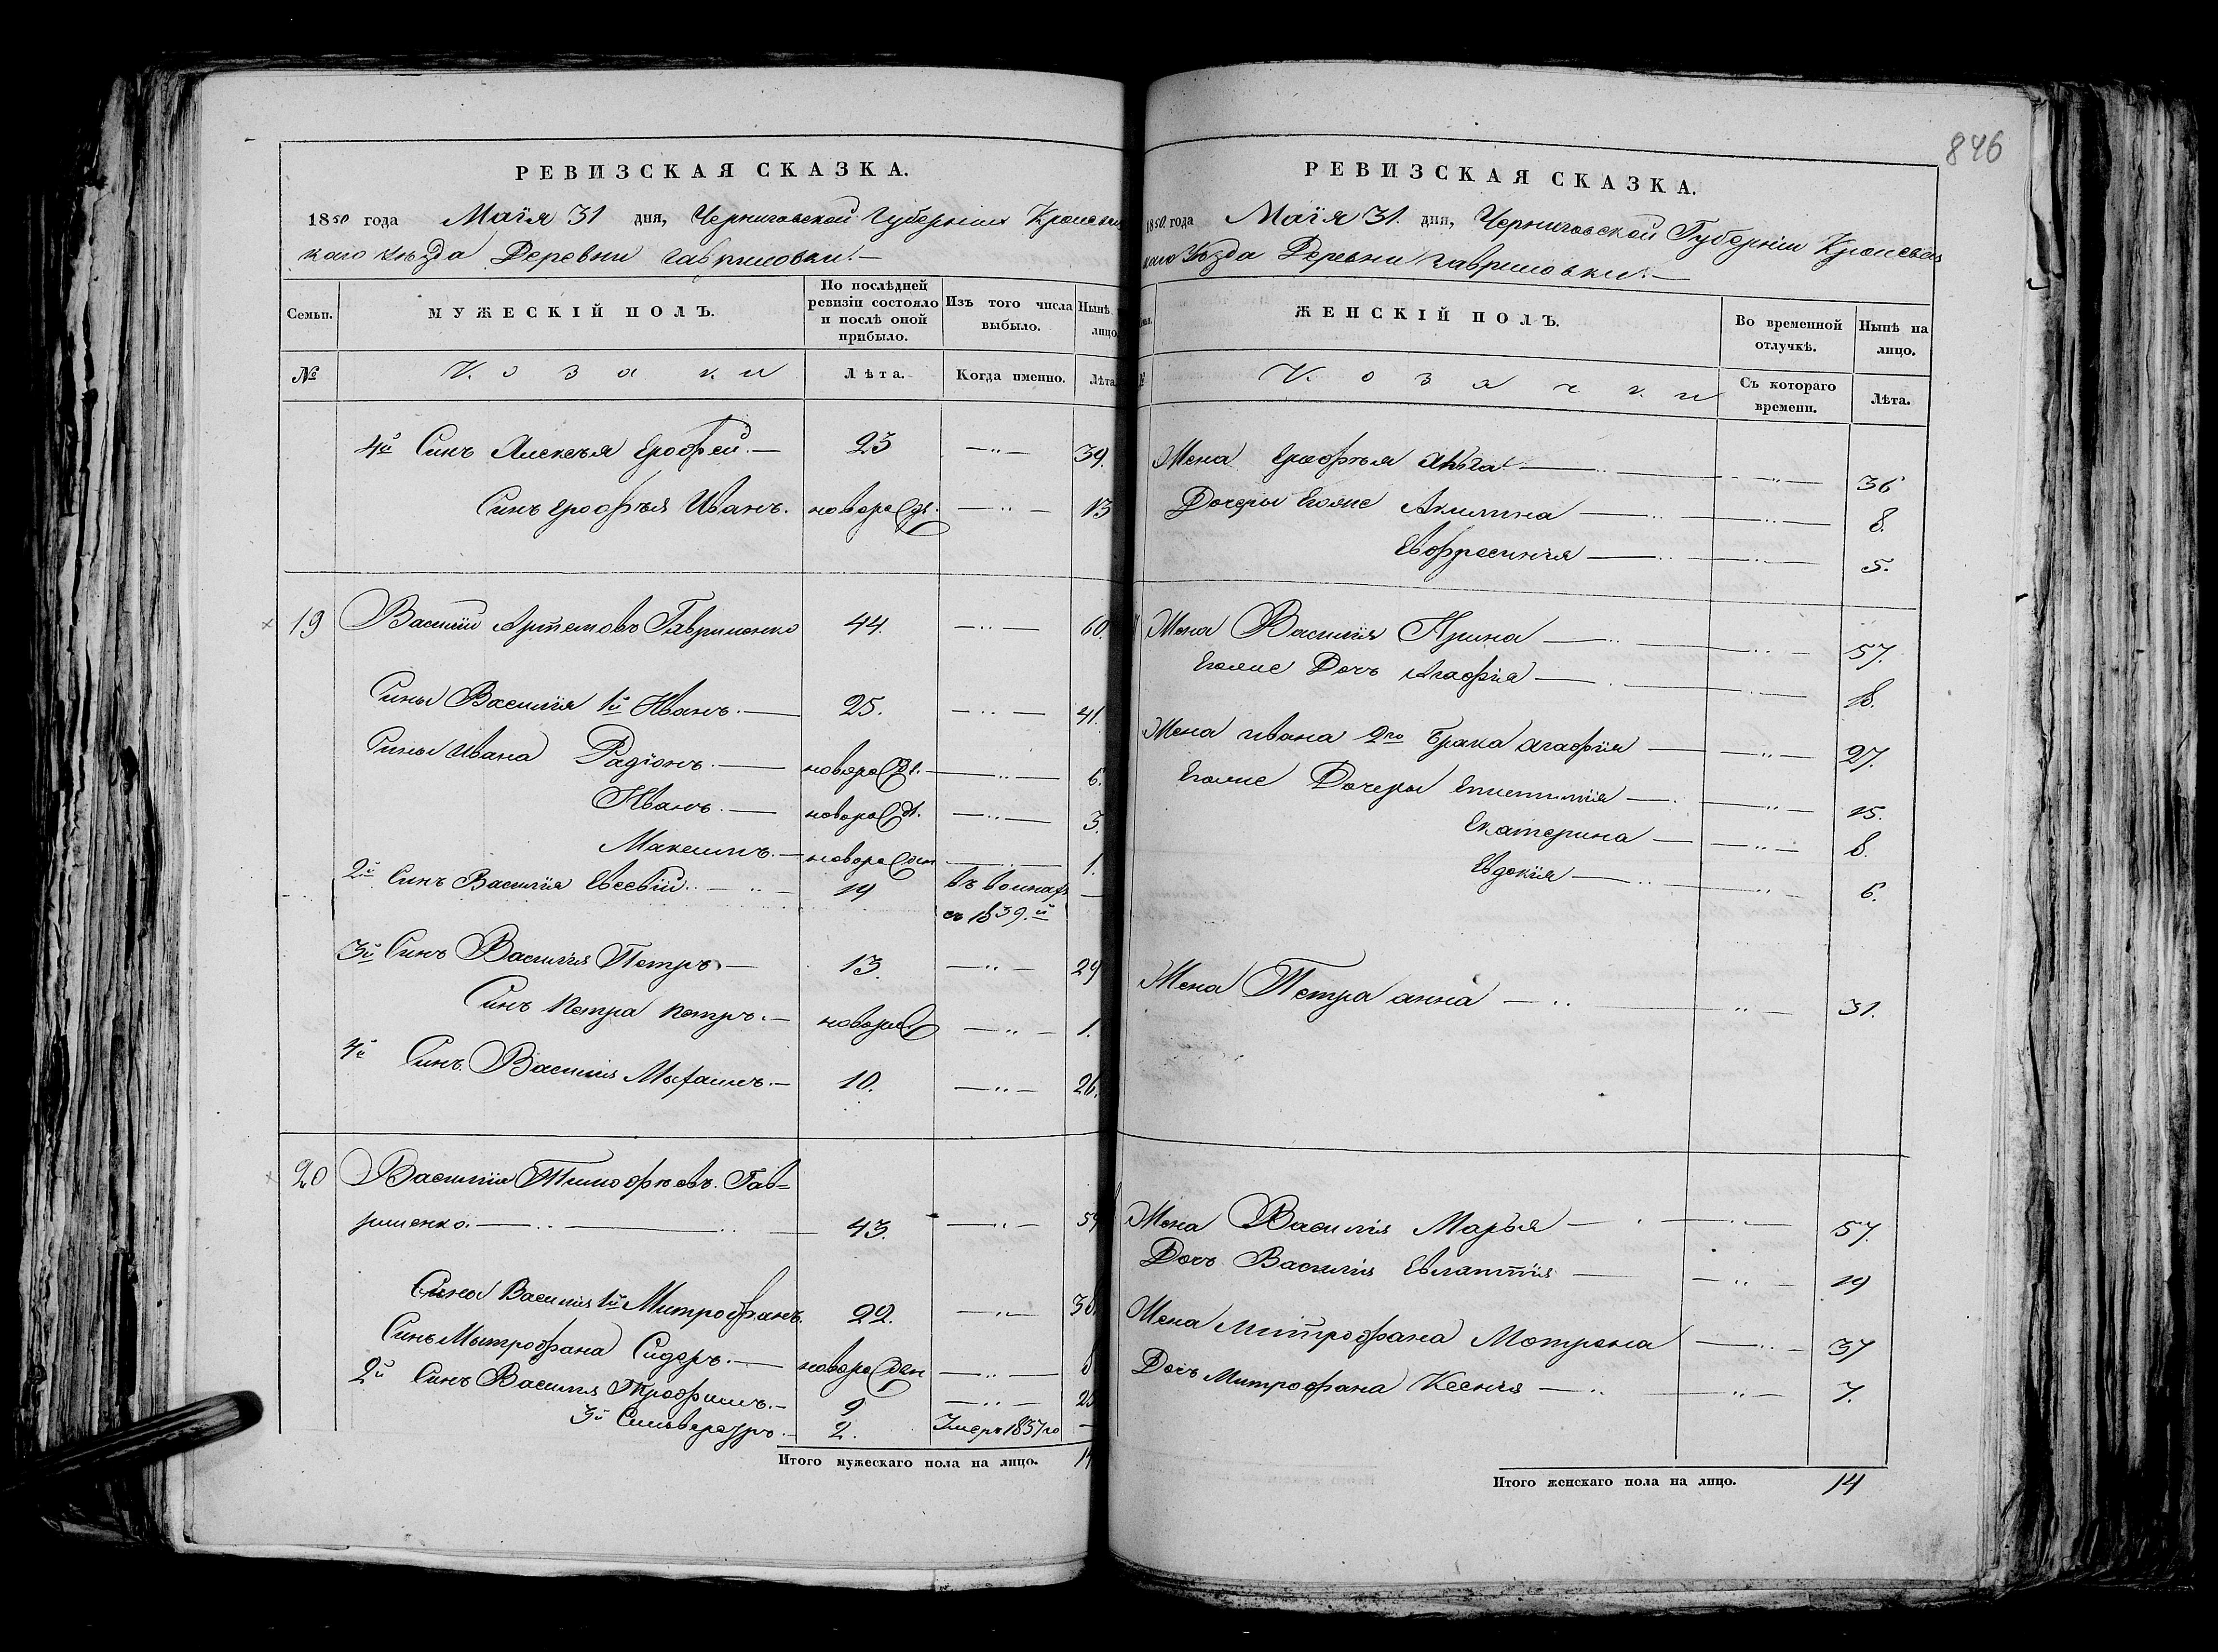 846
РЕВИЗСКАЯ СКАЗКА.
1850 года Маія 31 дня, Черниговской Губерніи Кролевец
каго Уѣзда Деревни Гавриловки.—
Семьи. МУЖЕСКІЙ ПОЛЪ. По послѣдней ревизіи состояло и послѣ оной прибыло. Изъ того числа выбыло. Нынѣ лицо
№ Козаки Лѣта. Когда именно. Лѣта
4й Синъ Алексѣя Ерофей.— 23 —„— 39.
Синъ Ерофѣя Иванъ. новорожд. —„— 13
19 Василій Артемовъ Гавриленко 44. —„— 60
Сины Василія 1й Иванъ.— 25. —„— 41.
Сины Ивана Радіонъ.— новорожд. —„— 6.
Иванъ.— новорожд. —„— 3.
Максимъ.— новорожден —„— 1.
2й Синъ Василія Евсевій. —„— 19 въ воинах —
съ 1839.й
3й Синъ Василія Петръ.— 13. —„— 29
Синъ Петра Петръ.— новорож —„— 1.
4й Синъ Василія Мыхаилъ.— 10. —„— 26.
20 Василій Тимофѣевъ Гав=
риленко.— 43. —„— 59
Сины Василія 1й Митрофанъ. 22. —„— 38
Синъ Мытрофана Сидоръ.— новорожден —„— 8
2й Синъ Василія Трофимъ.— 9 —„— 25
3й Сильверстръ.— 2. Умеръ 1837го —
Итого мужескаго пола на лицо. 14
РЕВИЗСКАЯ СКАЗКА.
1850 года Маія 31. дня, Черниговской Губерніи Кролевец
каго Уѣзда Деревни Гавриловки.—
ЖЕНСКІЙ ПОЛЪ. Во временной отлучкѣ. Нынѣ на лицо.
Козачки Съ котораго времени. Лѣта.
Жена Ерофѣя —„— 36
Дочеры Егоже Акилина —„— 8.
Евфросинія —„— 5.
Жена Василія Ирина —„— 57.
Егоже Дочъ Агафія —„— 18.
Жена Ивана 2го Брака Агафія —„— 27.
Егоже Дочеры Епистимія —„— 15.
Екатерина —„— 8.
Евдокія —„— 6.
Жена Петра Анна —„— 31.
Жена Василія Марья —„— 57.
Дочъ Василія Евлампія —„— 19
Жена Митрофана Мотрона —„— 37
Дочъ Митрофана Ксенія —„— 7.
Итого женскаго пола на лицо. 14